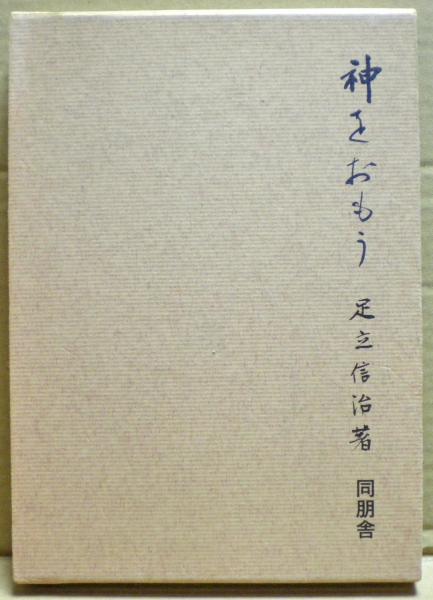 神をおもう
足立信治著
同朋舎